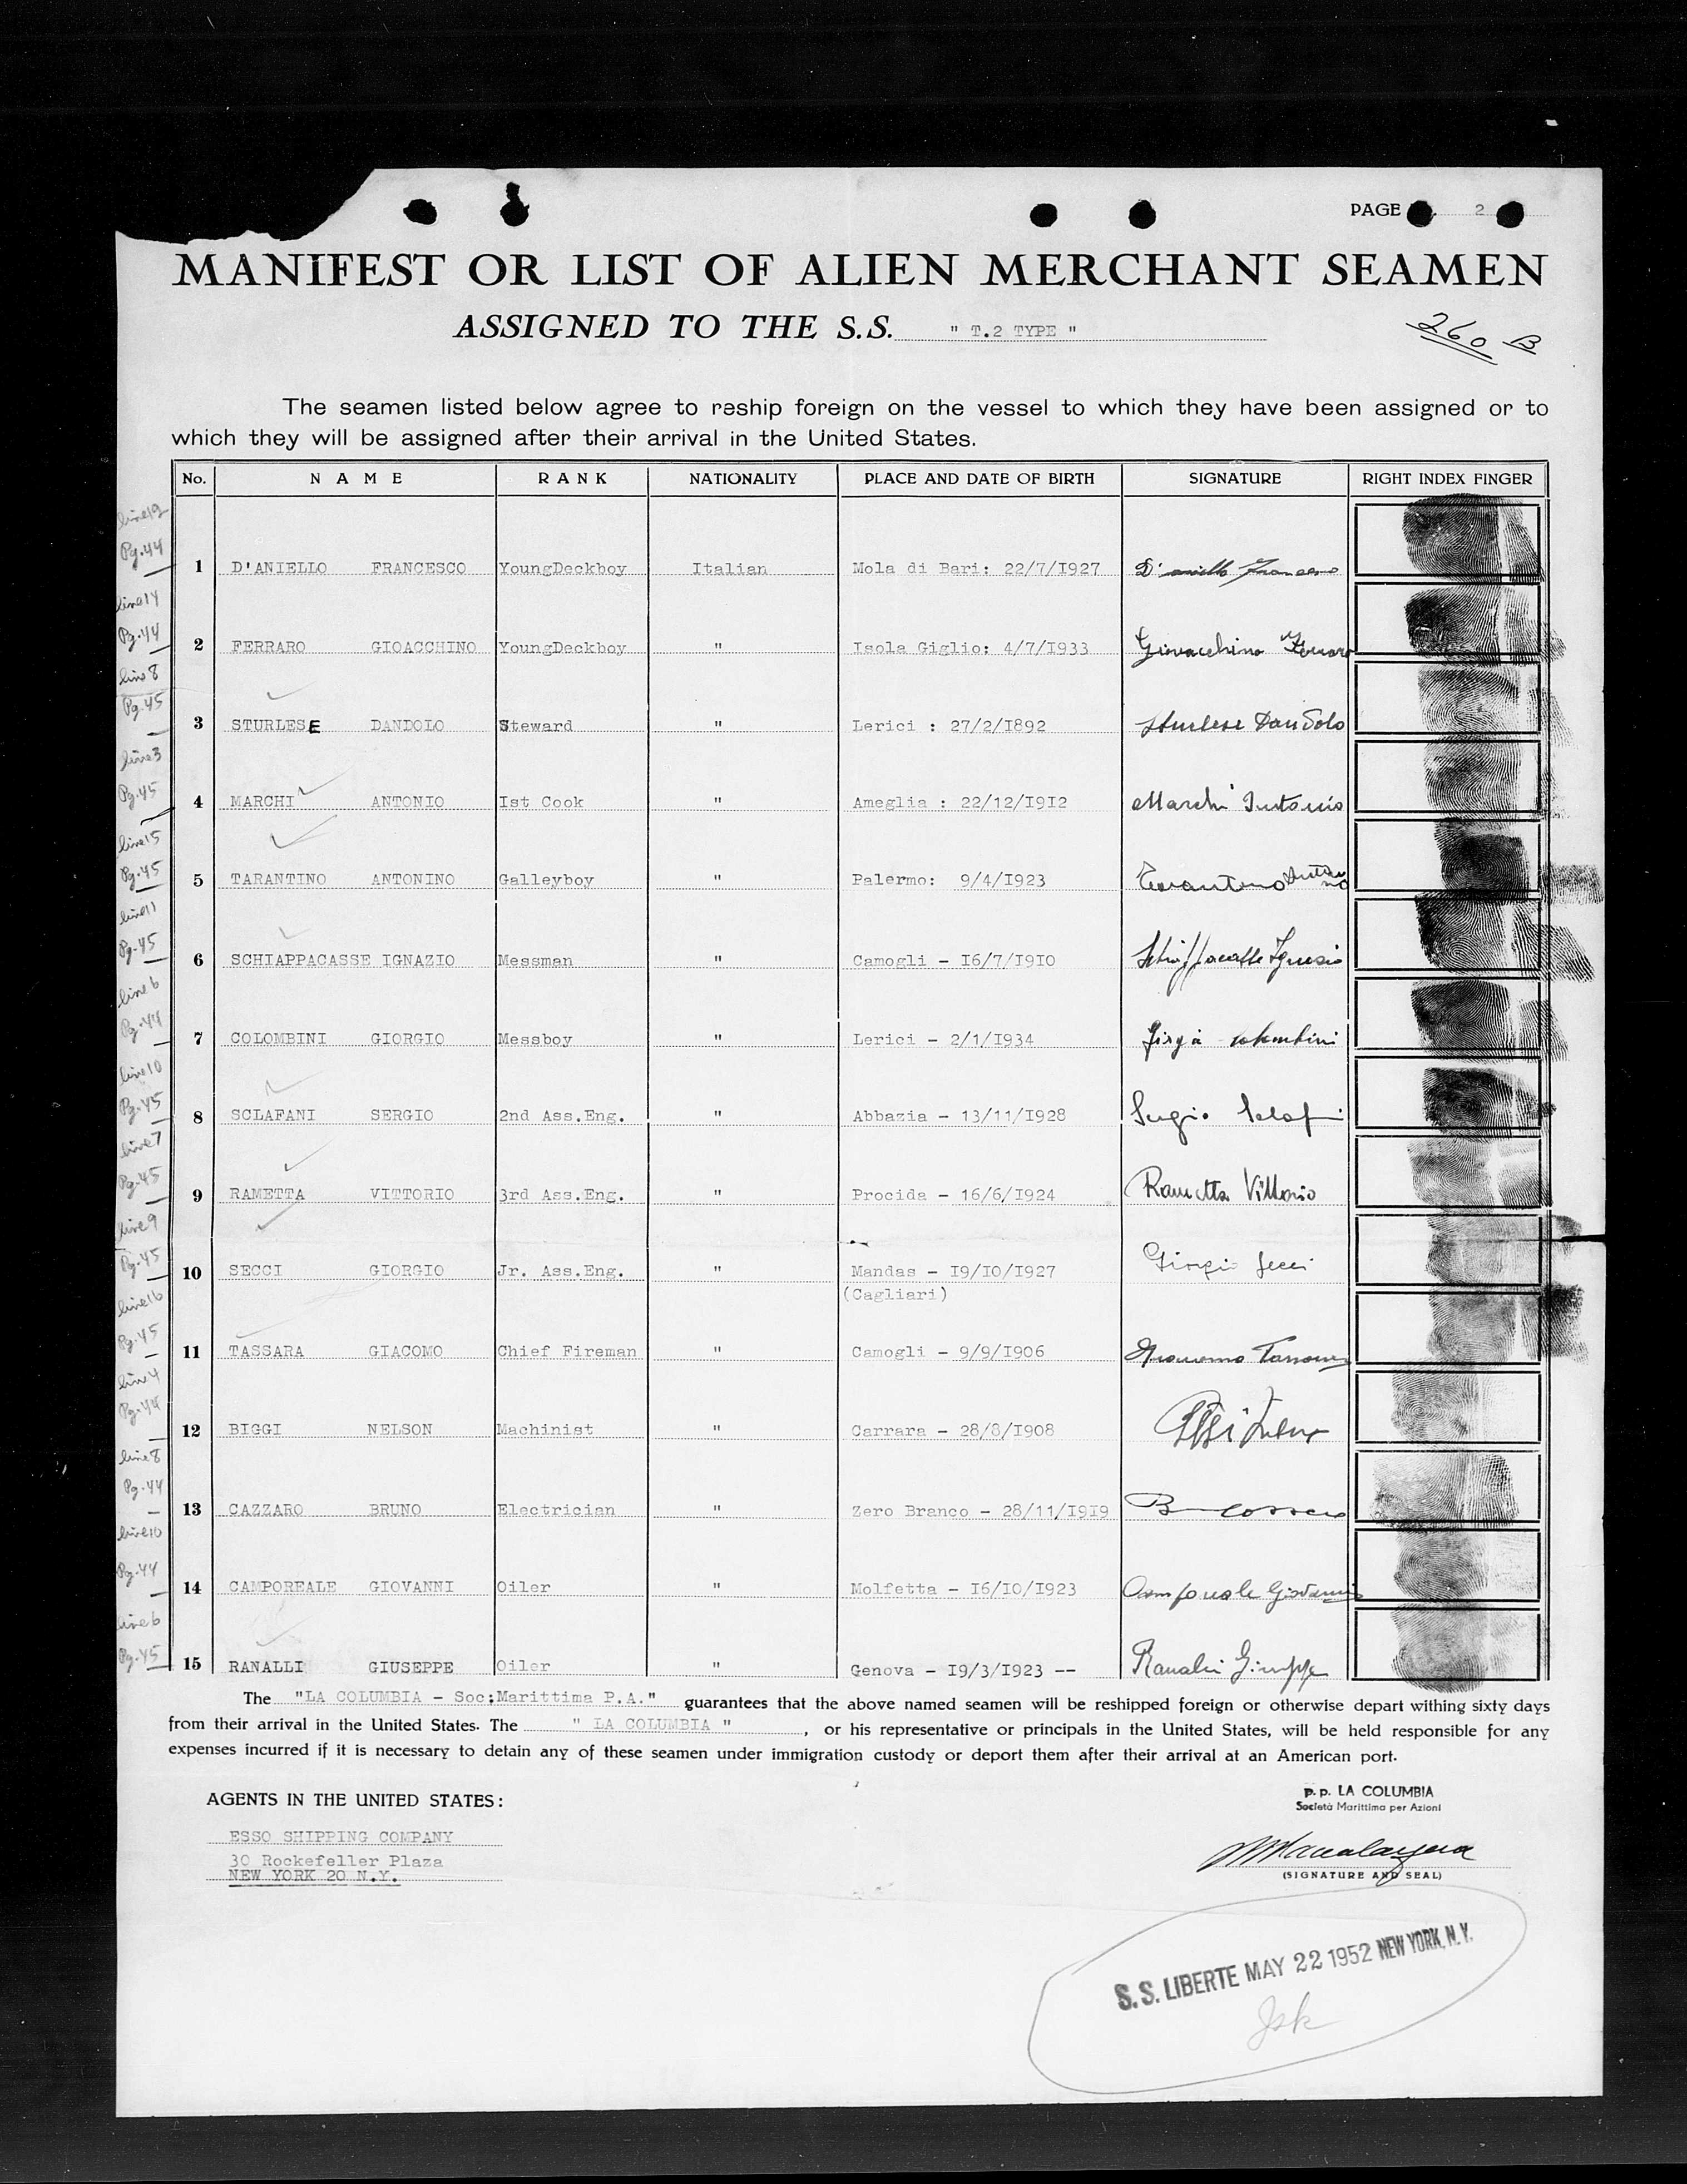 PAGE 2
MANIFEST OR LIST OF ALIEN MERCHANT SEAMEN
ASSIGNED TO THE S.S. " T.2 TYPE "
260 B
The seamen listed below agree to reship foreign on the vessel to which they have been assigned or to
which they will be assigned after their arrival in the United States.
No. NAME RANK NATIONALITY PLACE AND DATE OF BIRTH SIGNATURE RIGHT INDEX FINGER
line 12
Pg. 44
1 D'ANIELLO FRANCESCO YoungDeckboy Italian Mola di Bari: 22/7/I927 D'aniello Francesco
line 14
Pg. 44
2 FERRARO GIOACCHINO YoungDeckboy " Isola Giglio: 4/7/I933 Giovacchino Ferraro
line 8
Pg. 45
3 STURLESE DANDOLO Steward " Lerici : 27/2/I892 Sturlese Dandolo
line 3
Pg. 45
4 MARCHI ANTONIO Ist Cook " Ameglia : 22/I2/I9I2 Marchi Antonio
line 15
Pg. 45
5 TARANTINO ANTONINO Galleyboy " Palermo: 9/4/I923 Tarantino Antonino
line 11
Pg. 45
6 SCHIAPPACASSE IGNAZIO Messman " Camogli - I6/7/I9I0 Schiappacasse Ignazio
line 6
Pg. 44
7 COLOMBINI GIORGIO Messboy " Lerici - 2/I/I934 Giorgio Colombini
line 10
Pg. 45
8 SCLAFANI SERGIO 2nd Ass.Eng. " Abbazia - I3/II/I928 Sergio Sclafani
line 7
Pg. 45
9 RAMETTA VITTORIO 3rd Ass.Eng. " Procida - I6/6/I924 Rametta Vittorio
line 9
Pg. 45
10 SECCI GIORGIO Jr. Ass.Eng. " Mandas - I9/I0/I927 Giorgio Secci
(Cagliari)
line 16
Pg. 45
11 TASSARA GIACOMO Chief Fireman " Camogli - 9/9/I906 Giacomo Tassara
line 4
Pg. 44
12 BIGGI NELSON Machinist " Carrara - 28/8/I908
line 8
Pg. 44
13 CAZZARO BRUNO Electrician " Zero Branco - 28/II/I9I9 B Cazzaro
line 10
Pg. 44
14 CAMPOREALE GIOVANNI Oiler " Molfetta - I6/I0/I923 Camporeale Giovanni
line 6
Pg. 45
15 RANALLI GIUSEPPE Oiler " Genova - I9/3/I923 -- Ranalli Giuseppe
The "LA COLUMBIA - Soc;Marittima P.A." guarantees that the above named seamen will be reshipped foreign or otherwise depart withing sixty days
from their arrival in the United States. The " LA COLUMBIA ", or his representative or principals in the United States, will be held responsible for any
expenses incurred if it is necessary to detain any of these seamen under immigration custody or deport them after their arrival at an American port.
AGENTS IN THE UNITED STATES:
ESSO SHIPPING COMPANY
30 Rockefeller Plaza
NEW YORK 20 N.Y.
p. p. LA COLUMBIA
Società Marittima per Azioni
(SIGNATURE AND SEAL)
S.S. LIBERTE MAY 22 1952 NEW YORK, N.Y.